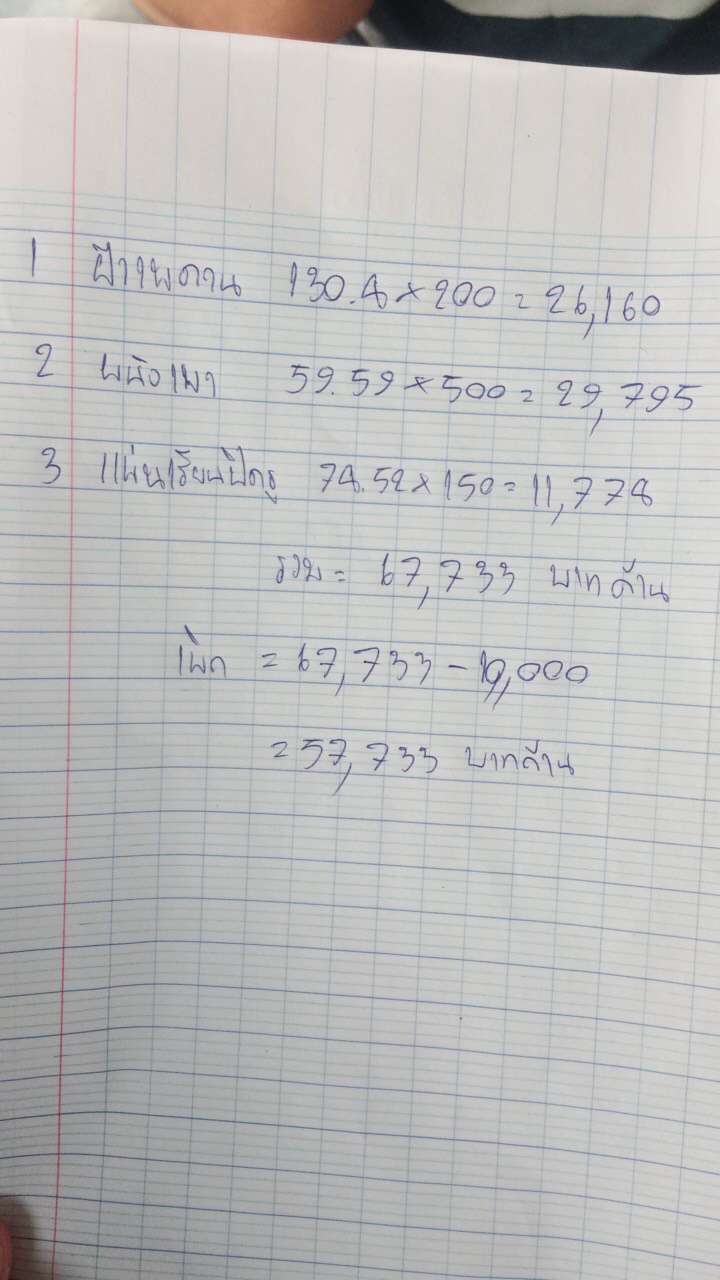 1 ฝ้าเพดาน 130.8 × 200 = 26,160
2 ผนังเบา 59.59 × 500 = 29,795
3 แผ่นเรียบปิดรู 78.52 × 150 = 11,778
รวม = 67,733 บาทถ้วน
เบิก = 67,733 - 10,000
= 57,733 บาทถ้วน